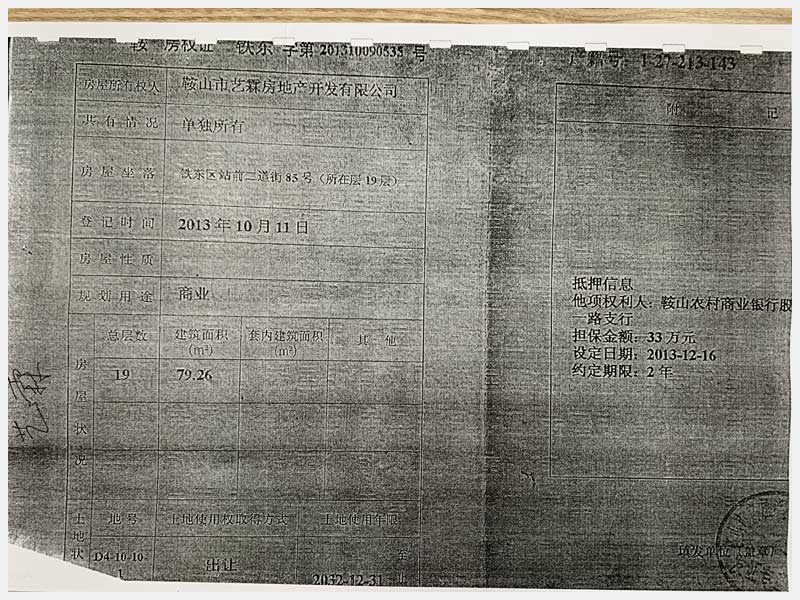 鞍 房权证 铁东 字第 201310090535 号
房屋所有权人 鞍山市艺霖房地产开发有限公司
共有情况 单独所有
房屋坐落 铁东区站前二道街85号（所在层19层）
登记时间 2013年10月11日
房屋性质
规划用途 商业
房屋状况
总层数 建筑面积(m²) 套内建筑面积(m²) 其他
19 79.26
土地状
地号 土地使用权取得方式 土地使用年限
D4-10-10-
1 出让 至
2032-12-31 止
产籍号：1-27-213-143
附 记
抵押信息
他项权利人：鞍山农村商业银行股
一路支行
担保金额：33万元
设定日期：2013-12-16
约定期限：2年
填发单位（盖章）